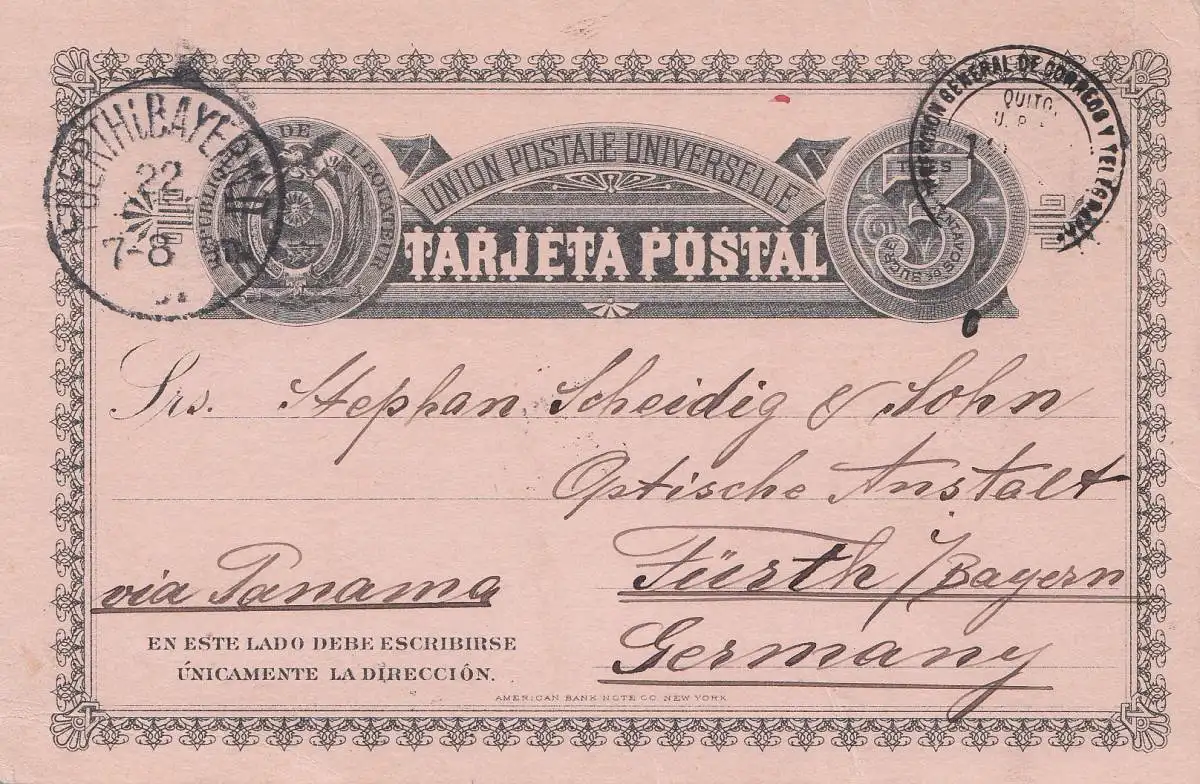 FUERTH i. BAYERN
22
7-8
REPUBLIQUE DE L'EQUATEUR
UNION POSTALE UNIVERSELLE
TARJETA POSTAL
TRES
3
CENTAVOS DE SUCRE
DIRECCION GENERAL DE CORREOS Y
QUITO
1
Srs. Stephan Scheidig & Sohn
Optische Anstalt
Fürth i/Bayern
via Panama
Germany
EN ESTE LADO DEBE ESCRIBIRSE
ÚNICAMENTE LA DIRECCIÓN.
AMERICAN BANK NOTE CO. NEW YORK.